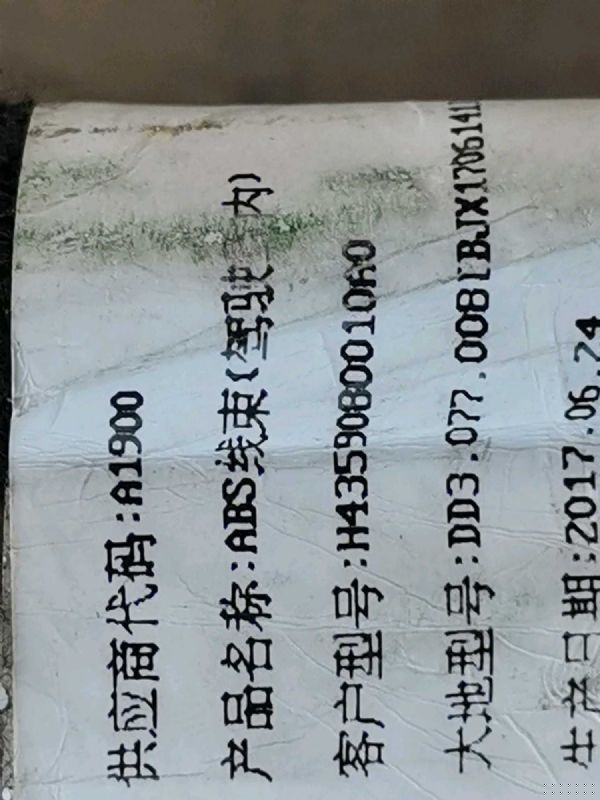 供应商代码:A1900
产品名称:ABS线束(驾驶 内)
客户型号:H4359080010A0
大地型号:DD3.077.008[BJX1706141
生产日期:2017.06.24